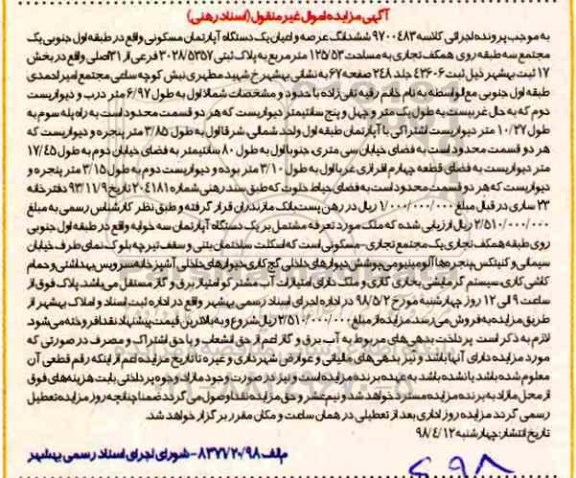 آگهی مزایده اموال غیر منقول (اسناد رهنی)
به موجب پرونده اجرائی کلاسه ۹۷۰۰۴۸۳ ششدانگ عرصه و اعیان یک دستگاه آپارتمان مسکونی واقع در طبقه اول جنوبی یک
مجتمع سه طبقه روی همکف تجاری به مساحت ۱۲۵/۵۳ متر مربع به پلاک ثبتی ۳۰۲۸/۵۳۵۷ فرعی از ۳۱ اصلی واقع در بخش
۱۷ ثبت بهشهر ذیل ثبت ۴۳۶۰۶ جلد ۲۴۸ صفحه ۶۷ به نشانی بهشهر خ شهید مطهری نبش کوچه ساعی مجتمع امیراحمدی
طبقه اول جنوبی مع الواسطه به نام خانم رقیه تقی زاده با حدود و مشخصات شمالا اول به طول ۶/۹۷ متر درب و دیواریست
دوم که به حال غربیست به طول یک متر و چهل و پنج سانتیمتر دیواریست که هر دو قسمت محدود است به راه پله سوم به
طول ۱۰/۲۷ متر دیواریست اشتراکی با آپارتمان طبقه اول واحد شمالی شرقا اول به طول ۳/۸۵ متر پنجره و دیواریست که
هر دو قسمت محدود است به فضای خیابان سی متری، جنوبا اول به طول ۸۰ سانتیمتر به فضای خیابان دوم به طول ۱۷/۴۵
متر دیواریست به فضای قطعه چهارم افرازی غربا اول به طول ۳/۱۰ متر بوده و دیواریست دوم به طول ۳/۱۵ متر پنجره و
دیواریست که هر دو قسمت محدود است به فضای حیاط خلوت که طبق سند رهنی شماره ۲۰۴۱۸۱ تاریخ ۹۳/۱۱/۹ دفترخانه
۲۳ ساری در قبال مبلغ ۱/۰۰۰/۰۰۰/۰۰۰ ریال در رهن پست بانک مازندران قرار گرفته و طبق نظر کارشناس رسمی به مبلغ
۲/۵۱۰/۰۰۰/۰۰۰ ریال ارزیابی شده که ملک مورد تعرفه مشتمل بر یک دستگاه آپارتمان سه خوابه واقع در طبقه اول جنوبی
روی طبقه همکف تجاری یک مجتمع تجاری-مسکونی است که اسکلت ساختمان بتنی و سقف تیرچه بلوک نمای طرف خیابان
سیمانی و کنیتکس پنجره ها آلومینیومی پوشش دیوارهای داخلی گچ کاری دیوارهای داخلی آشپزخانه سرویس بهداشتی و حمام
کاشی کاری سیستم گرمایشی بخاری گازی و ملک دارای امتیازات آب مشترک و امتیاز برق و گاز مستقل می باشد پلاک فوق از
ساعت ۹ الی ۱۲ روز چهارشنبه مورخ ۹۸/۵/۲ در اداره اجرای اسناد رسمی بهشهر واقع در اداره ثبت اسناد و املاک بهشهر از
طریق مزایده به فروش می رسد. مزایده از مبلغ ۲/۵۱۰/۰۰۰/۰۰۰ ریال شروع و به بالاترین قیمت پیشنهاد نقدا فروخته می شود
لازم به ذکر است پرداخت بدهی های مربوط به آب برق و گاز اعم از حق انشعاب و یا حق اشتراک و مصرف در صورتی که
مورد مزایده دارای آنها باشد و نیز بدهی های مالیاتی و عوارض شهرداری و غیره تا تاریخ مزایده اعم از اینکه رقم قطعی آن
معلوم شده باشد یا نشده باشد به عهده برنده مزایده است و نیز در صورت وجود مازاد وجوه پرداختی بابت هزینه های فوق
از محل مازاد به برنده مزایده مسترد خواهد شد و نیم عشر و حق مزایده نقدا وصول می گردد ضمنا چنانچه روز مزایده تعطیل
رسمی گردد مزایده روز اداری بعد از تعطیلی در همان ساعت و مکان مقرر برگزار خواهد شد.
تاریخ انتشار: چهارشنبه ۹۸/۴/۱۲
م الف ۸۳۷۷/۲۰/۹۸-شورای اجرای اسناد رسمی بهشهر